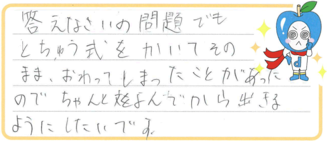 答えなさいの問題でも
とちゅう式をかいてその
まま、おわってしまったことがあった
のでちゃんと　よんでから出きる
ようにしたいです。